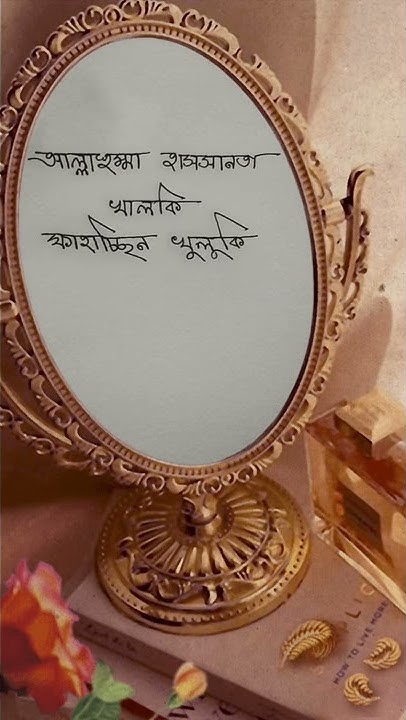 আল্লাহুম্মা হাসসানতা
খালকি
ফাহাচ্ছিন খুলুকি
HOW TO LIVE MORE